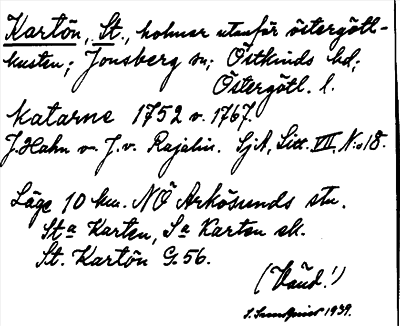 Kartön, St., holmar utanför östergötl-
kusten; Jonsberg sn; Östkinds hd;
Östergötl. l.
Katarne 1752 v. 1767.
J. Hahn v. J. v. Rajalin. SjA, Litt. VII, N:o 18.
Läge 10 km. NÖ Arkösunds stn.
Sta Karten, Sa Karten sk.
St. Kartön G.56.
(Vänd!)
1939.